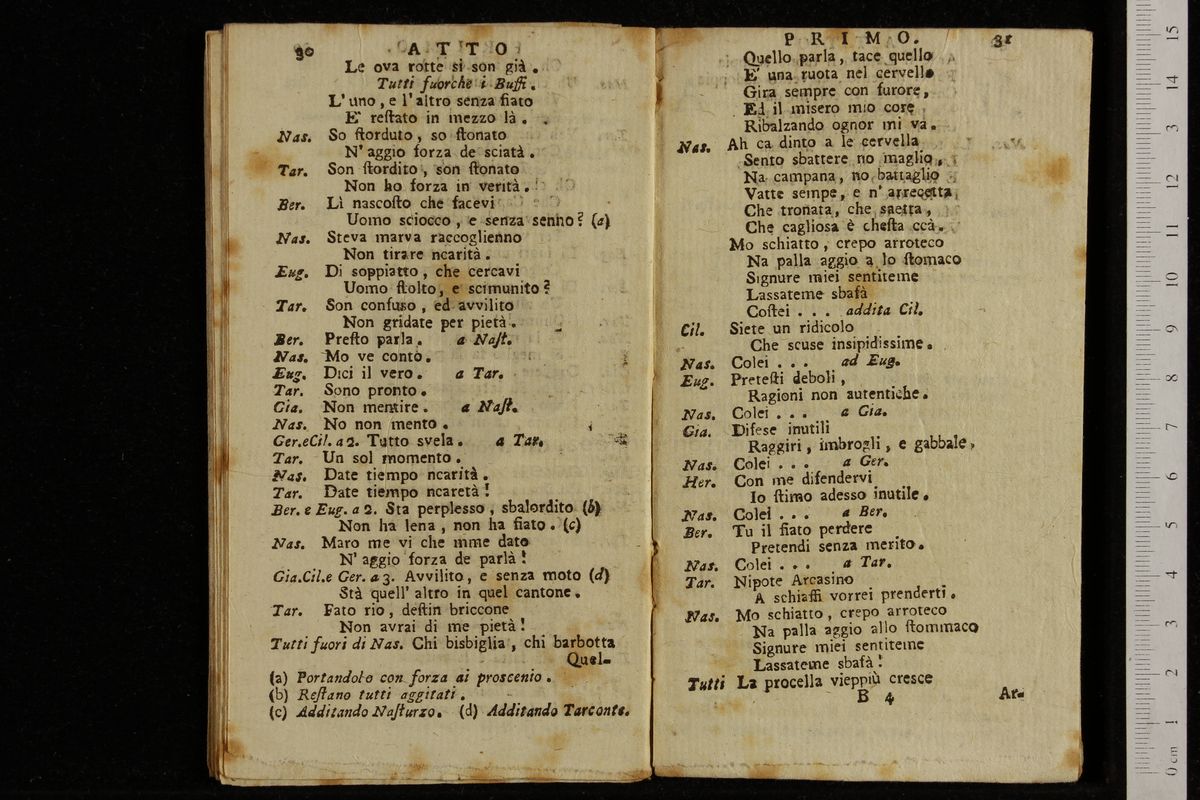 30 ATTO
Le ova rotte si son già.
Tutti fuorchè i Buffi.
L'uno, e l'altro senza fiato
E' reſtato in mezzo là.
Nas. So ſtorduto, so ſtonato
N'aggio forza de sciatà.
Tar. Son ſtordito, son ſtonato
Non ho forza in verità.
Ber. Lì nascoſto che facevi
Uomo sciocco, e senza senno? (a)
Nas. Steva marva raccoglienno
Non tirare ncarità.
Eug. Di soppiatto, che cercavi
Uomo ſtolto, e scimunito?
Tar. Son confuso, ed avvilito
Non gridate per pietà.
Ber. Preſto parla. a Naſt.
Nas. Mo ve conto.
Eug. Dici il vero. a Tar.
Tar. Sono pronto.
Gia. Non mentire. a Naſt.
Nas. No non mento.
Ger.eCil. a 2. Tutto svela. a Tar.
Tar. Un sol momento.
Nas. Date tiempo ncarità.
Tar. Date tiempo ncaretà!
Ber. e Eug. a 2. Sta perplesso, sbalordito (b)
Non ha lena, non ha fiato. (c)
Nas. Maro me vi che mme dato
N'aggio forza de parlà!
Gia.Cil.e Ger. a 3. Avvilito, e senza moto (d)
Stà quell'altro in quel cantone.
Tar. Fato rio, deſtin briccone
Non avrai di me pietà!
Tutti fuori di Nas. Chi bisbiglia, chi barbotta
Quel-
(a) Portandolo con forza ai proscenio.
(b) Reſtano tutti aggitati.
(c) Additando Naſturzo. (d) Additando Tarconte.
PRIMO. 31
Quello parla, tace quello
E' una ruota nel cervello
Gira sempre con furore,
Ed il misero mio core
Ribalzando ognor mi va.
Nas. Ah ca dinto a le cervella
Sento sbattere no maglio,
Na campana, no battaglio
Vatte sempe, e n'arrecetta
Che tronata, che saetta,
Che cagliosa è cheſta ccà.
Mo schiatto, crepo arroteco
Na palla aggio a lo ſtomaco
Signure miei sentiteme
Lassateme sbafà
Coſtei . . . addita Cil.
Cil. Siete un ridicolo
Che scuse insipidissime.
Nas. Colei . . . ad Eug.
Eug. Preteſti deboli,
Ragioni non autentiche.
Nas. Colei . . . a Gia.
Gia. Difese inutili
Raggiri, imbrogli, e gabbale,
Nas. Colei . . . a Ger.
Her. Con me difendervi
Io ſtimo adesso inutile.
Nas. Colei . . . a Ber.
Ber. Tu il fiato perdere
Pretendi senza merito.
Nas. Colei . . . a Tar.
Tar. Nipote Arcasino
A schiaffi vorrei prenderti.
Nas. Mo schiatto, crepo arroteco
Na palla aggio allo ſtommaco
Signure miei sentiteme
Lassateme sbafà!
Tutti La procella vieppiù cresce
B 4 Ar-
0 cm 1 2 3 4 5 6 7 8 9 10 11 12 13 14 15